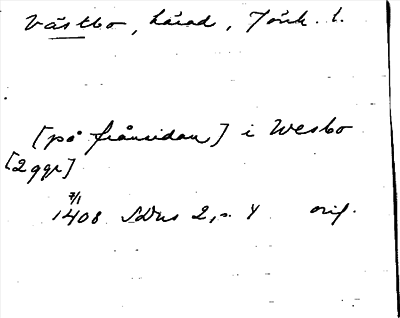 Västbo, härad, Jönk. l.
[på frånsidan] i Wesbo
[2 ggr]
7/1
1408 SDns 2, s. 4 orig.